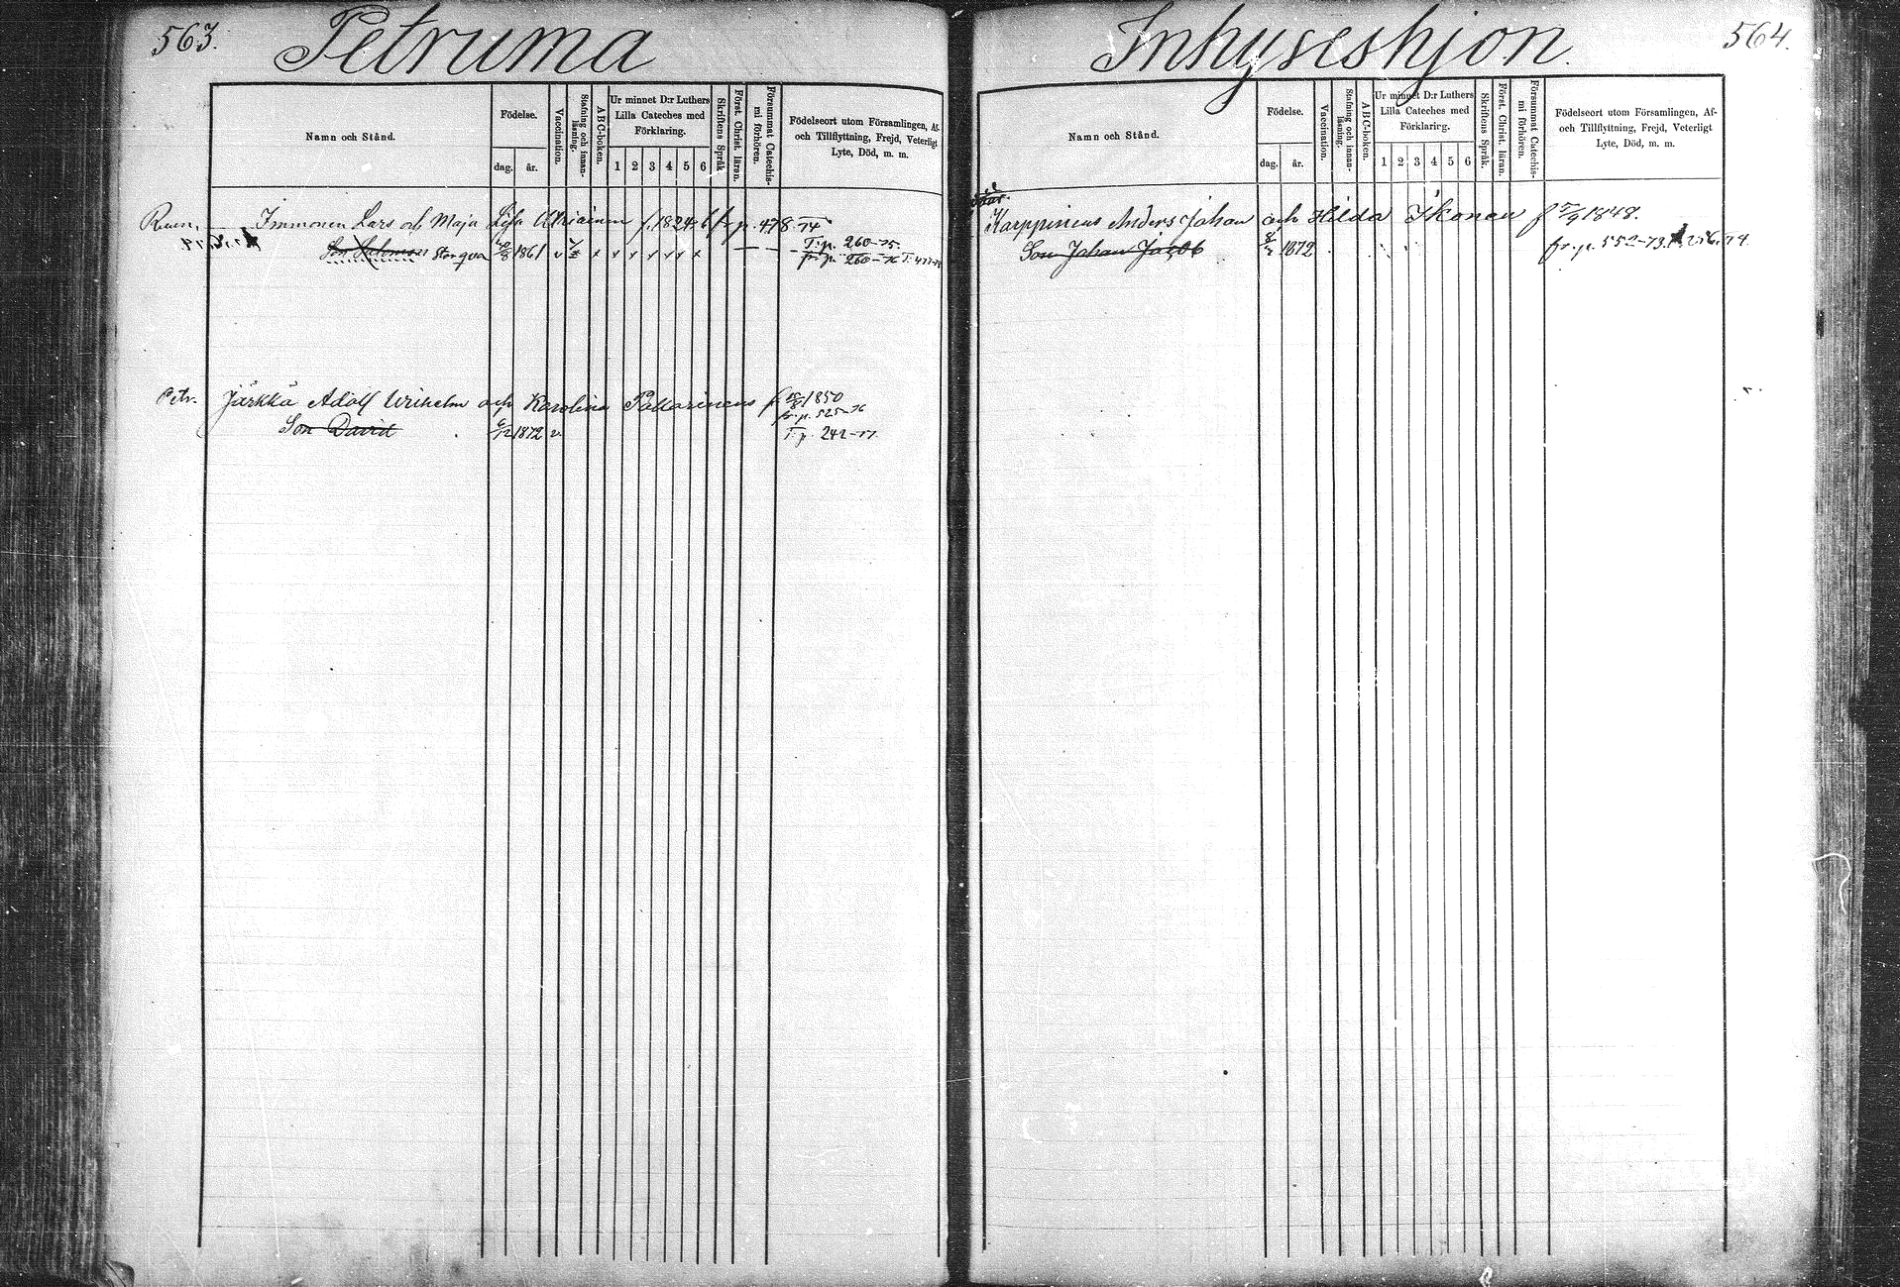 563.
Petruma
Namn och Stånd.
Födelse.
dag. år.
Vaccination.
Stafning och innan-läsning.
ABC-boken.
Ur minnet D:r Luthers
Lilla Cateches med
Förklaring.
1 2 3 4 5 6
Skriftens Språk
Först. Christ. läran.
Försummat Catechis-mi förhören.
Födelseort utom Församlingen, Af-
och Tillflyttning, Frejd, Veterligt
Lyte, Död, m. m.
Immonen Lars och Maja Lisa f. 1824 fr. p. 478-74
Son 1861 v x x x x x x x T. p. 260-75.
fr. p. 260-76
Petr. Järkkä Adolf Wilhelm och Karolina f. 1850
fr. p. 525-76
Son David 6/12 1872 v. T. p. 242-77.
Inhyseshjon.
564.
Namn och Stånd.
Födelse.
dag. år.
Vaccination.
Stafning och innan-läsning.
ABC-boken.
Ur minnet D:r Luthers
Lilla Cateches med
Förklaring.
1 2 3 4 5 6
Skriftens Språk.
Först. Christ. läran.
Försummat Catechis-mi förhören.
Födelseort utom Församlingen, Af-
och Tillflyttning, Frejd, Veterligt
Lyte, Död, m. m.
Karppinens Anders Johan och Hilda Ikonen f 5/9 1848.
Son Johan Jacob 1872 fr. p. 552-73.